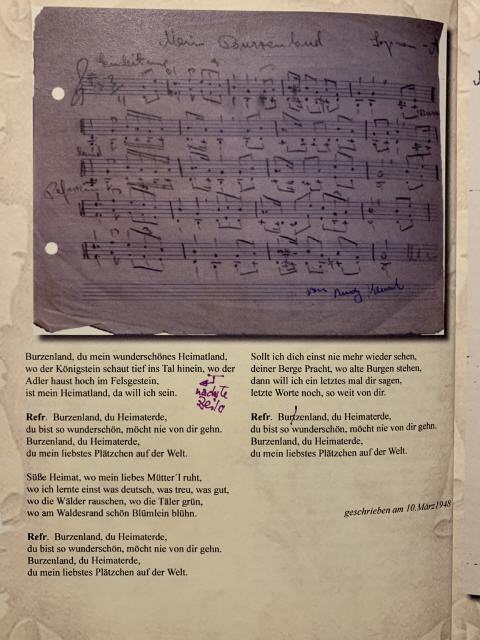 Mein Burzenland
Sopran
Einleitung
Refrain
von
Burzenland, du mein wunderschönes Heimatland,
wo der Königstein schaut tief ins Tal hinein, wo der
Adler haust hoch im Felsgestein,
ist mein Heimatland, da will ich sein.
nächste
Zeile
Refr. Burzenland, du Heimaterde,
du bist so wunderschön, möcht nie von dir gehn.
Burzenland, du Heimaterde,
du mein liebstes Plätzchen auf der Welt.
Süße Heimat, wo mein liebes Mütter´l ruht,
wo ich lernte einst was deutsch, was treu, was gut,
wo die Wälder rauschen, wo die Täler grün,
wo am Waldesrand schön Blümlein blühn.
Refr. Burzenland, du Heimaterde,
du bist so wunderschön, möcht nie von dir gehn.
Burzenland, du Heimaterde,
du mein liebstes Plätzchen auf der Welt.
Sollt ich dich einst nie mehr wieder sehen,
deiner Berge Pracht, wo alte Burgen stehen,
dann will ich ein letztes mal dir sagen,
letzte Worte noch, so weit von dir.
Refr. Burzenland, du Heimaterde,
du bist so wunderschön, möcht nie von dir gehn.
Burzenland, du Heimaterde,
du mein liebstes Plätzchen auf der Welt.
geschrieben am 10.März1948